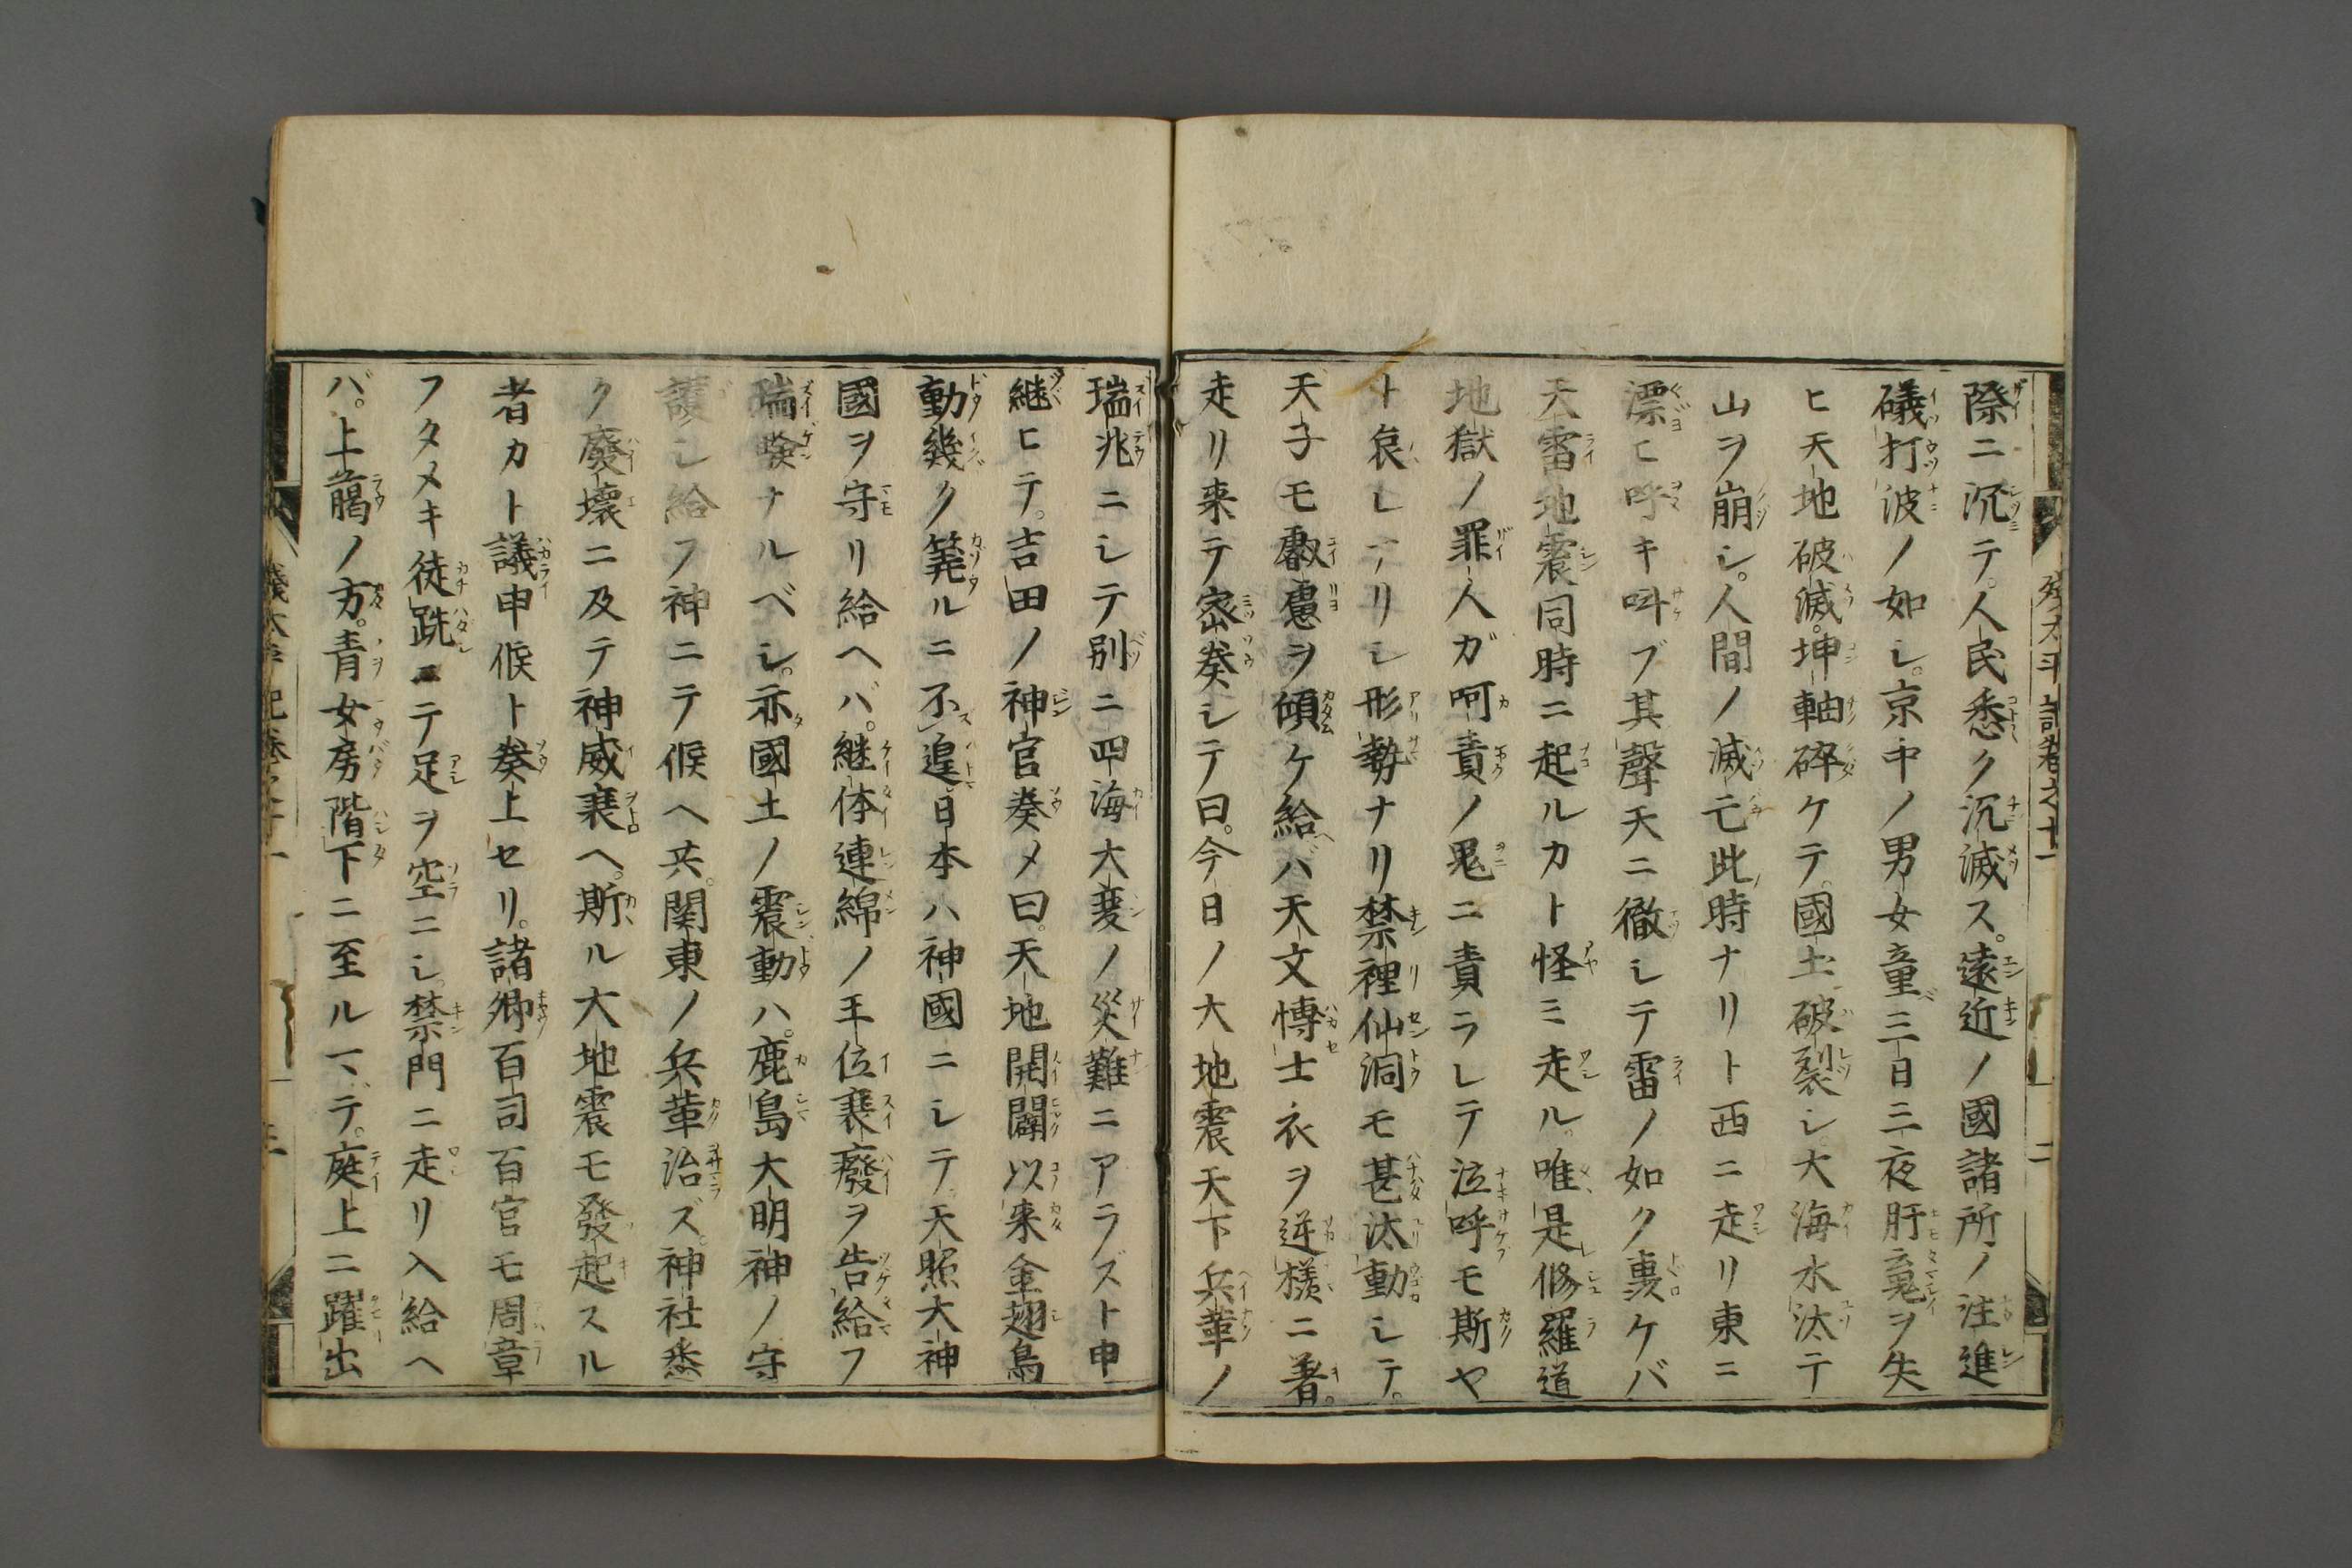 際ニ沉テ。人民悉ク沉滅ス。遠近ノ國諸所ノ注進
礒打波ノ如シ。京中ノ男女童三日三夜肝䰟ヲ失
ヒ天地破滅。坤軸碎ケテ。國土破裂シ大海水汰テ
山ヲ崩シ。人間ノ滅亡此時ナリト西ニ走リ東ニ
漂ヒ呼キ叫ブ其聲天ニ徹シテ雷ノ如ク轟ケバ
天雷地震同時ニ起ルカト怪ミ走ル。唯是修羅道
地獄ノ罪人ガ呵責ノ鬼ニ責ラレテ泣呼モ斯ヤ
ト哀レナリシ形勢ナリ禁裡仙洞モ甚汰動シテ。
天子モ叡慮ヲ傾ケ給ヘバ天文博士衣ヲ逆樣ニ著。
走リ来テ密奏シテ曰。今日ノ大地震天下兵革ノ
瑞兆ニシテ別ニ四海大變ノ災難ニアラズト申
継ヒテ。吉田ノ神官奏メ曰。天地開闢以来金翅鳥
動幾ク筭ルニ不遑日本ハ神國ニシテ天照大神
國ヲ守リ給ヘバ。継体連綿ノ王位衰廢ヲ告給フ
瑞驗ナルベシ。亦國土ノ震動ハ。鹿島大明神ノ守
護シ給フ神ニテ候ヘ共。関東ノ兵革治ズ。神社悉
ク廢壞ニ及テ神威衰ヘ。斯ル大地震モ發起スル
者カト議申候ト奏上セリ。諸卿百司百官モ周章
フタメキ徒跣ニテ足ヲ空ニシ。禁門ニ走リ入給ヘ
バ。上﨟ノ方。青女房階下ニ至ルマデ。庭上ニ躍出